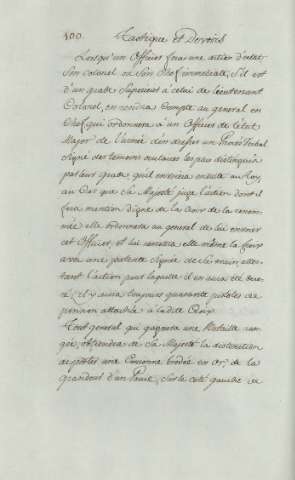 100. Tactique et Devoirs
Lorsqu'un Officier fera une action d'eclat
Son Colonel ou Son Chef immediat, S'il est
d'un grade Superieur à celui de lieutenant
Colonel, en rendra Compte au general en
Chef qui ordonnera à un Officier de l'état
Major de l'armée d'en dresser un Procès Verbal
Signé des temoins oculaires les plus distingués
par leur grade qu'il enverra ensuite au Roy,
au Cas que Sa Majesté juge l'action dont il
fera mention digne de la Croix de la renom-
mée elle ordonnera au general de lui envoier
cet Officier, et lui remettra elle même la Croix
avec une patente Signée de Sa main attes-
tant l'action pour laquelle il en aura été deco-
ré; il y aura toujours quarante pistoles de
pension attachée à ladite Croix.
Tout general qui gagnera une Bataille ran-
gée, obtiendra de Sa Majesté la distinction
de porter une Couronne brodée en or, de la
grandeur d'un Pouce, Sur le coté gauche de